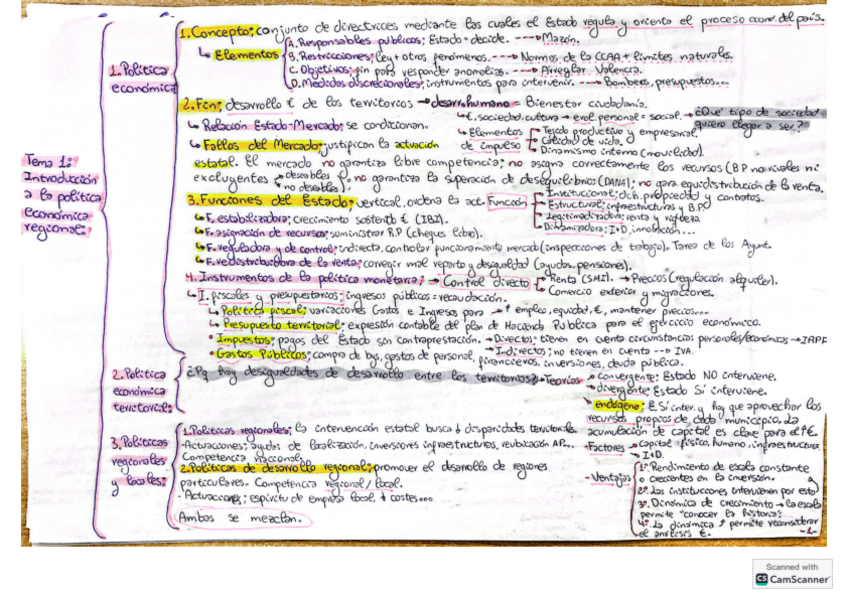 1. Concepto; conjunto de directrices mediante las cuales el Estado regula y orienta el proceso econ. del país.
↳ Elementos
A. Responsables públicos; Estado = decide. ---→ Mazón.
B. Restricciones; ley + otros fenómenos. ---→ Normas de la CCAA + límites naturales.
C. Objetivos; fin para responder anomalías. ---→ Arreglar Valencia.
D. Medidas discrecionales; instrumentos para intervenir. ---→ Bomberos, presupuestos...
1. Política económica
2. Fin; desarrollo € de los territorios → desarr. humano = Bienestar ciudadanía.
↳ €, sociedad, cultura → personal = social. → ¿Qué tipo de sociedad quiero llegar a ser?
↳ Relación Estado-Mercado; se condicionan.
↳ Elementos de impulso
Tejido productivo y empresarial.
Calidad de vida.
Dinamismo interno (movilidad).
↳ Fallos del Mercado; justifican la actuación
estatal. El mercado no garantiza libre competencia; no asigna correctamente los recursos (BP no rivales ni
excluyentes deseables no deseables), no garantiza la superación de desequilibrios (DANA); no gara. equidistribución de la renta.
Tema 1: Introducción a la política económica regional:
3. Funciones del Estado; vertical, ordena la act. Función
Institucional; dch. propiedad y contratos.
Estructural; infraestructuras y B.P
Legitimadora; renta y riqueza
Dinamizadora; I+D, innovación...
↳ F. estabilizadora; crecimiento sostenido € (IBI).
↳ F. asignación de recursos; suministrar B.P (cheques libro).
↳ F. reguladora y de control; indirecta, controlar funcionamiento mercado (inspecciones de trabajo). Tarea de los Ayunt.
↳ F. redistribuidora de la renta; corregir mal reparto y desigualdad (ayudas, pensiones).
4. Instrumentos de la política monetaria; → Control directo
Renta (SMI). → Precios (regulación alquiler).
Comercio exterior y migraciones.
↳ I. fiscales y presupuestarios; ingresos públicos = recaudación.
↳ Política fiscal; variaciones Gastos e Ingresos para → ↑ empleo, equidad, €, mantener precios...
↳ Presupuesto territorial; expresión contable del plan de Hacienda Pública para el ejercicio económico.
• Impuestos; pagos del Estado sin contraprestación. → Directos; tienen en cuenta circunstancias personales/económicas → IRPF
↳ Indirectos; no tienen en cuenta --→ IVA.
• Gastos Públicos; compra de bys, gastos de personal, financieros, inversiones, deuda pública.
2. Política económica territorial:
¿Pq hay desigualdades de desarrollo entre los territorios? → Teorías
convergente; Estado NO interviene.
divergente; Estado Sí interviene.
endógeno; E. Sí inter. y hay que aprovechar los recursos propios de cada municipio. La acumulación de capital es clave para el ↑€.
- Factores → Capital físico, humano, infraestructura
→ I+D.
- Ventajas
1º Rendimiento de escala constante o crecientes en la inversión.
2º Las instituciones intervienen por esto
3º Dinámica de crecimiento → la escala permite "conocer la historia".
4º La dinámica permite reconsiderar el análisis €.
-1-
3. Políticas regionales y locales:
1. Políticas regionales; la intervención estatal busca ↓ disparidades territoriales.
-Actuaciones; ayudas de localización, inversiones infraestructuras, reubicación AP...
Competencia nacional.
2. Políticas de desarrollo regional; promover el desarrollo de regiones
particulares. Competencia regional/local.
-Actuaciones; espíritu de empresa local, ↓ costes...
Ambos se mezclan.
Scanned with
CS CamScanner